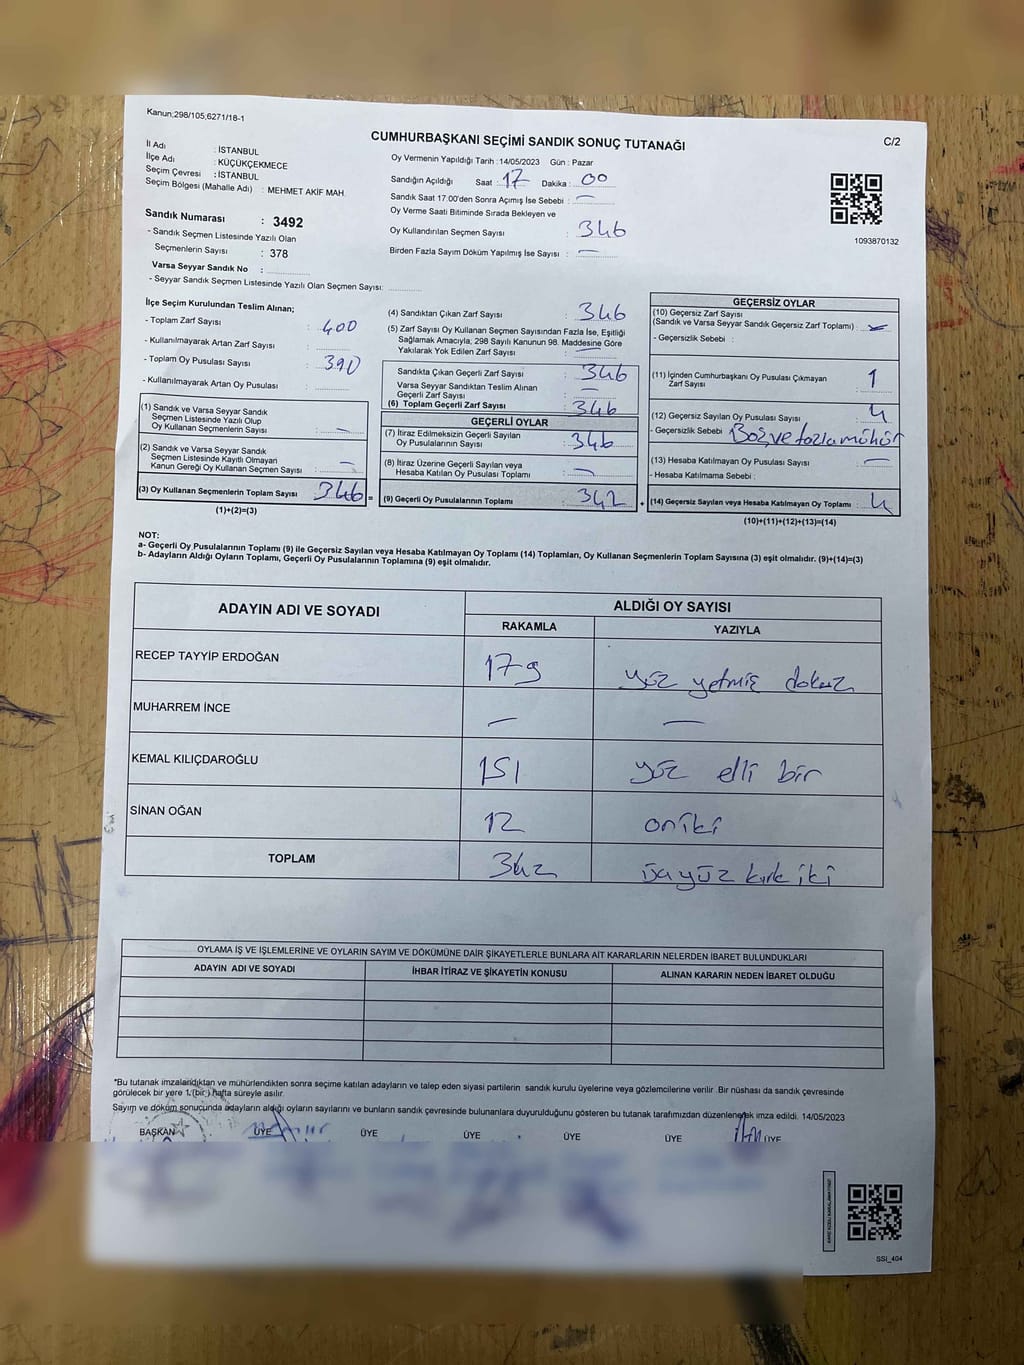 Kanun;298/105;6271/18-1
CUMHURBAŞKANI SEÇİMİ SANDIK SONUÇ TUTANAĞI
C/2
İl Adı : İSTANBUL
İlçe Adı : KÜÇÜKÇEKMECE
Seçim Çevresi : İSTANBUL
Seçim Bölgesi (Mahalle Adı) : MEHMET AKİF MAH.
Sandık Numarası : 3492
- Sandık Seçmen Listesinde Yazılı Olan
Seçmenlerin Sayısı : 378
Varsa Seyyar Sandık No :
- Seyyar Sandık Seçmen Listesinde Yazılı Olan Seçmen Sayısı:
Oy Vermenin Yapıldığı Tarih :14/05/2023 Gün : Pazar
Sandığın Açıldığı Saat : 17 Dakika : 00
Sandık Saat 17.00'den Sonra Açımış İse Sebebi : —
Oy Verme Saati Bitiminde Sırada Bekleyen ve
Oy Kullandırılan Seçmen Sayısı : 346
Birden Fazla Sayım Döküm Yapılmış İse Sayısı : —
1093870132
İlçe Seçim Kurulundan Teslim Alınan;
- Toplam Zarf Sayısı : 400
- Kullanılmayarak Artan Zarf Sayısı :
- Toplam Oy Pusulası Sayısı : 390
- Kullanılmayarak Artan Oy Pusulası :
(1) Sandık ve Varsa Seyyar Sandık
Seçmen Listesinde Yazılı Olup
Oy Kullanan Seçmenlerin Sayısı : —
(2) Sandık ve Varsa Seyyar Sandık
Seçmen Listesinde Kayıtlı Olmayan
Kanun Gereği Oy Kullanan Seçmen Sayısı : —
(3) Oy Kullanan Seçmenlerin Toplam Sayısı : 346 =
(1)+(2)=(3)
(4) Sandıktan Çıkan Zarf Sayısı : 346
(5) Zarf Sayısı Oy Kullanan Seçmen Sayısından Fazla İse, Eşitliği
Sağlamak Amacıyla, 298 Sayılı Kanunun 98. Maddesine Göre
Yakılarak Yok Edilen Zarf Sayısı : —
Sandıkta Çıkan Geçerli Zarf Sayısı : 346
Varsa Seyyar Sandıktan Teslim Alınan
Geçerli Zarf Sayısı : —
(6) Toplam Geçerli Zarf Sayısı : 346
GEÇERLİ OYLAR
(7) İtiraz Edilmeksizin Geçerli Sayılan
Oy Pusulalarının Sayısı : 346
(8) İtiraz Üzerine Geçerli Sayılan veya
Hesaba Katılan Oy Pusulası Toplamı : —
(9) Geçerli Oy Pusulalarının Toplamı : 342 +
GEÇERSİZ OYLAR
(10) Geçersiz Zarf Sayısı
(Sandık ve Varsa Seyyar Sandık Geçersiz Zarf Toplamı) : —
- Geçersizlik Sebebi :
(11) İçinden Cumhurbaşkanı Oy Pusulası Çıkmayan
Zarf Sayısı : 1
(12) Geçersiz Sayılan Oy Pusulası Sayısı : 4
- Geçersizlik Sebebi : Boş ve fazla mühür
(13) Hesaba Katılmayan Oy Pusulası Sayısı : —
- Hesaba Katılmama Sebebi :
(14) Geçersiz Sayılan veya Hesaba Katılmayan Oy Toplamı : 4
(10)+(11)+(12)+(13)=(14)
NOT:
a- Geçerli Oy Pusulalarının Toplamı (9) ile Geçersiz Sayılan veya Hesaba Katılmayan Oy Toplamı (14) Toplamları, Oy Kullanan Seçmenlerin Toplam Sayısına (3) eşit olmalıdır. (9)+(14)=(3)
b- Adayların Aldığı Oyların Toplamı, Geçerli Oy Pusulalarının Toplamına (9) eşit olmalıdır.
ADAYIN ADI VE SOYADI
ALDIĞI OY SAYISI
RAKAMLA YAZIYLA
RECEP TAYYİP ERDOĞAN 179 yüz yetmiş dokuz
MUHARREM İNCE — —
KEMAL KILIÇDAROĞLU 151 yüz elli bir
SİNAN OĞAN 12 oniki
TOPLAM 342 üçyüz kırk iki
OYLAMA İŞ VE İŞLEMLERİNE VE OYLARIN SAYIM VE DÖKÜMÜNE DAİR ŞİKAYETLERLE BUNLARA AİT KARARLARIN NELERDEN İBARET BULUNDUKLARI
ADAYIN ADI VE SOYADI İHBAR İTİRAZ VE ŞİKAYETİN KONUSU ALINAN KARARIN NEDEN İBARET OLDUĞU
*Bu tutanak imzalandıktan ve mühürlendikten sonra seçime katılan adayların ve talep eden siyasi partilerin sandık kurulu üyelerine veya gözlemcilerine verilir .Bir nüshası da sandık çevresinde
görülecek bir yere 1.(bir.) hafta süreyle asılır.
Sayım ve döküm sonucunda adayların aldığı oyların sayılarını ve bunların sandık çevresinde bulunanlara duyurulduğunu gösteren bu tutanak tarafımızdan düzenlenerek imza edildi. 14/05/2023
BAŞKAN ÜYE ÜYE ÜYE ÜYE ÜYE ÜYE
SSI_404